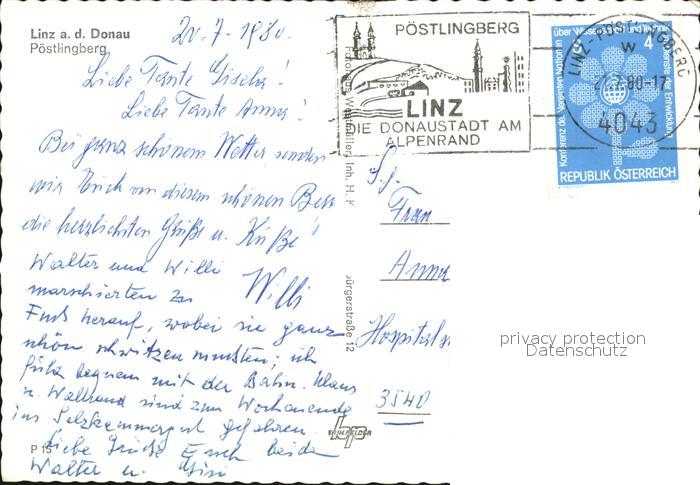 Linz a. d. Donau
Pöstlingberg
20.7.1980.
Liebe Tante Gisela!
Liebe Tante Anna!
Bei ganz schönem Wetter senden
wir Euch von diesem schönen Berg
die herzlichsten Grüße u. Küße!
Willi
Walter und Willi
marschierten zu
Fuß herauf, wobei sie ganz
schön schwitzen mußten; ich
fuhr bequem mit der Bahn. Klaus
u. Waltraud sind zum Wochenende
ins Salzkammergut gefahren.
Liebe Grüße Euch beiden
Walter u. Gisi
P 15
PÖSTLINGBERG
LINZ
DIE DONAUSTADT AM
ALPENRAND
LINZ-PÖSTLINGBERG
w
80-17
4043
Konferenz der Vereinten Nationen über Wissenschaft und Technik im Dienste der Entwicklung
S 4
REPUBLIK ÖSTERREICH
Inh. H.
bürgerstraße 12
Frau
Anna
3540
privacy protection
Datenschutz